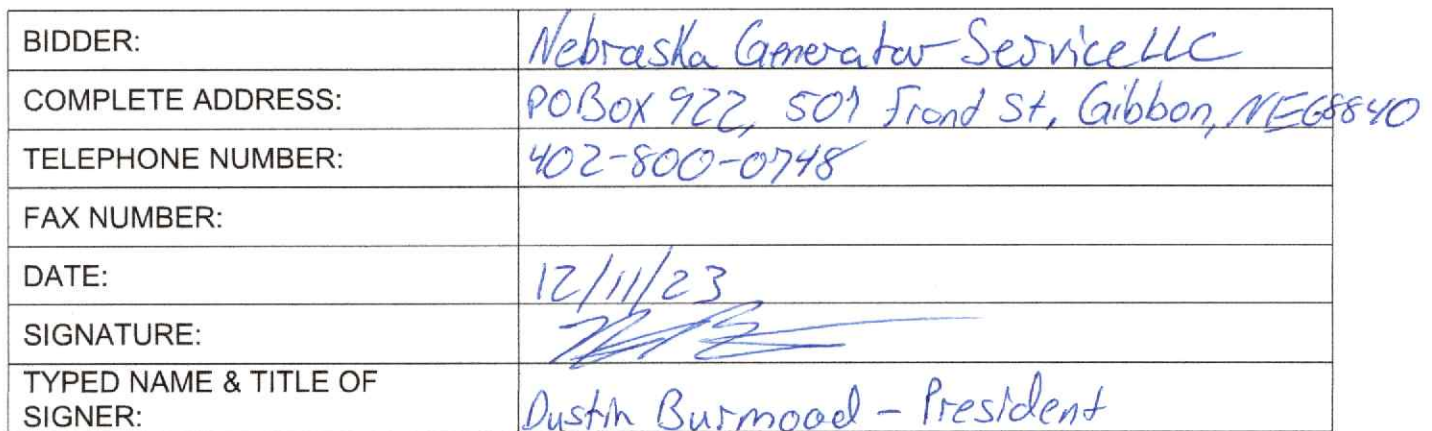 BIDDER: Nebraska Generator Service LLC
COMPLETE ADDRESS: PO Box 922, 507 Frond St, Gibbon, NE 68840
TELEPHONE NUMBER: 402-800-0748
FAX NUMBER:
DATE: 12/11/23
SIGNATURE:
TYPED NAME & TITLE OF
SIGNER: Dustin Burmood - President